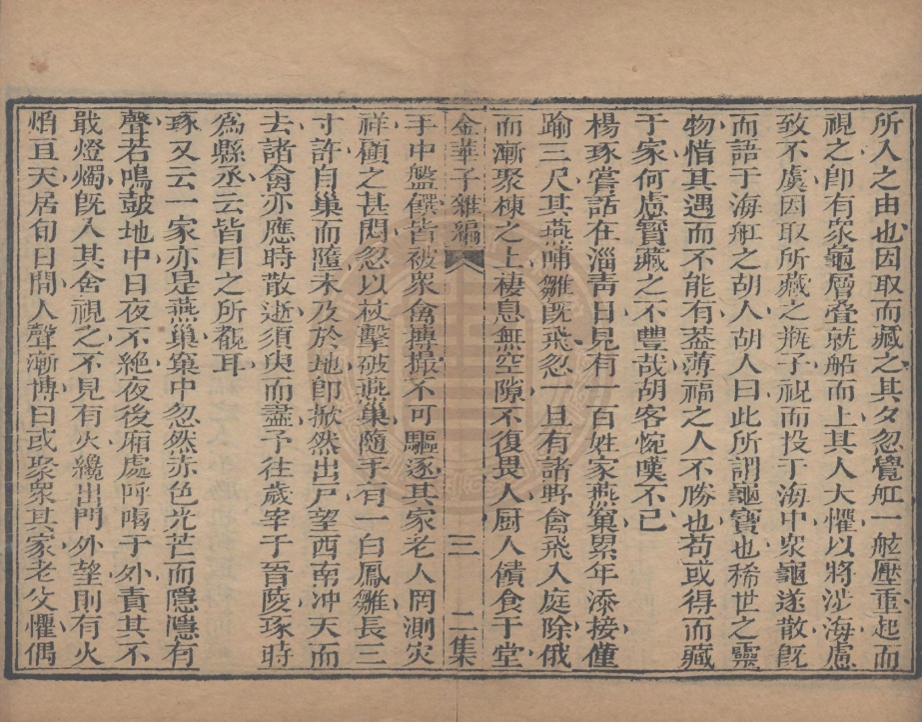 所入之由也因取而藏之其夕忽覺舡一舷壓重起而
視之卽有眾龜層疊就船而上其人大懼以將涉海慮
致不虞因取所藏之瓶子祝而投于海中衆龜遂散旣
而語于海舡之胡人胡人曰此所謂龜寶也稀世之靈
物惜其遇而不能有葢薄福之人不勝也苟或得而藏
于家何慮寶藏之不豐哉胡客惋嘆不已
楊琢嘗話在淄靑日見有一百姓家燕窠累年添接僅
踰三尺其燕哺雛旣飛忽一旦有諸野禽飛入庭除俄
而漸聚棟之上棲息無空隙不復畏人厨人饋食于堂
金華子雜編 三 二集
手中盤饌皆被衆禽搏撮不可驅逐其家老人罔測災
祥頗之甚悶忽以杖擊破燕巢隨手有一白鳳雛長三
寸許自巢而隨未及於地卽掀然出戶望西南冲天而
去諸禽亦應時散逝須臾而盡予往歲宰于晉陵琢時
爲縣丞云皆目之所覩耳
琢又云一家亦是燕巢窠中忽然赤色光芒而隱隱有
聲若鳴鼓地中日夜不絕夜後廂處呼喝于外責其不
戢燈燭旣入其舍視之不見有火纔出門外望則有火
焰亘天居旬日間人聲漸博曰或聚衆其家老父懼偶